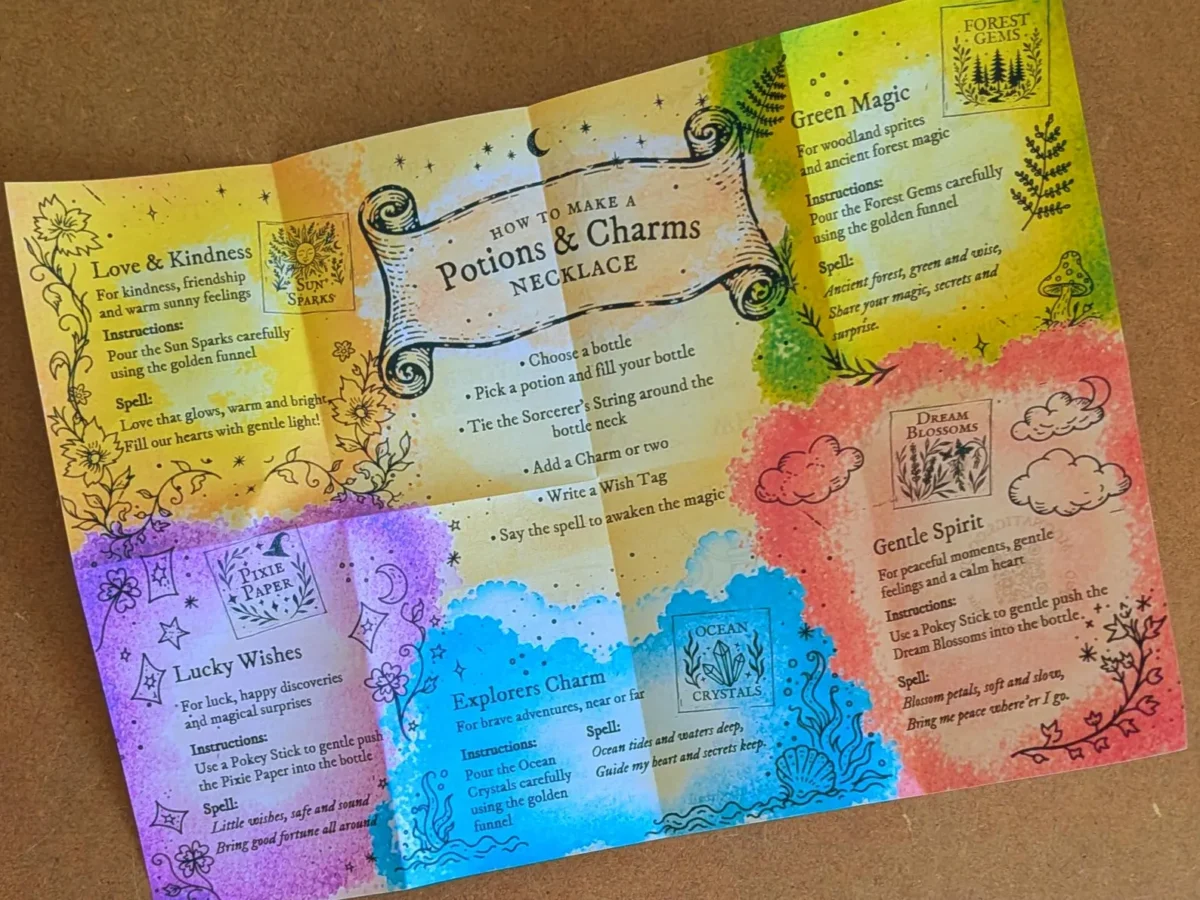 HOW TO MAKE A
Potions & Charms
NECKLACE
• Choose a bottle
• Pick a potion and fill your bottle
• Tie the Sorcerer's String around the
bottle neck
• Add a Charm or two
• Write a Wish Tag
• Say the spell to awaken the magic
Love & Kindness
For kindness, friendship
and warm sunny feelings
Instructions:
Pour the Sun Sparks carefully
using the golden funnel
Spell:
Love that glows, warm and bright,
Fill our hearts with gentle light!
SUN
SPARKS
FOREST
GEMS
Green Magic
For woodland sprites
and ancient forest magic
Instructions:
Pour the Forest Gems carefully
using the golden funnel
Spell:
Ancient forest, green and wise,
Share your magic, secrets and
surprise.
PIXIE
PAPER
Lucky Wishes
For luck, happy discoveries
and magical surprises
Instructions:
Use a Pokey Stick to gentle push
the Pixie Paper into the bottle
Spell:
Little wishes, safe and sound
Bring good fortune all around
OCEAN
CRYSTALS
Explorers Charm
For brave adventures, near or far
Instructions:
Pour the Ocean
Crystals carefully
using the golden
funnel
Spell:
Ocean tides and waters deep,
Guide my heart and secrets keep.
DREAM
BLOSSOMS
Gentle Spirit
For peaceful moments, gentle
feelings and a calm heart
Instructions:
Use a Pokey Stick to gentle push the
Dream Blossoms into the bottle.
Spell:
Blossom petals, soft and slow,
Bring me peace where'er I go.